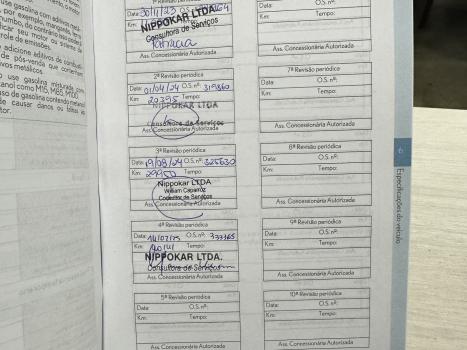 use gasolina com aditivos
por exemplo, manganês,
numbo, do contrário isso poderá
ficar seu motor ou sistema de
trole de emissões.
adicione aditivos de combus-
de pós-venda que contenham
ivos metálicos.
use gasolina misturada com
etanol como M15, M85, M100
de gasolina contendo metanol
de causar danos ou falhas ao
tor.
Data: 30/11/23 O.S. nº:
Km: Tempo:
NIPPOKAR LTDA
Consultora de Serviços
Ass. Concessionária Autorizada
2ª Revisão periódica
Data: 01/04/24 O.S. nº: 319860
Km: 20395 Tempo:
NIPPOKAR LTDA
Consultora de Serviços
Ass. Concessionária Autorizada
3ª Revisão periódica
Data: 19/08/24 O.S. nº: 325630
Km: 29950 Tempo:
Nippokar LTDA
William Caparroz
Consultor de Serviços
Ass. Concessionária Autorizada
4ª Revisão periódica
Data: 14/02/25 O.S. nº: 333365
Km: Tempo:
NIPPOKAR LTDA.
Consultora de Serviços
Ass. Concessionária Autorizada
5ª Revisão periódica
Data: O.S. nº:
Km: Tempo:
Ass. Concessionária Autorizada
Data: O.S. nº:
Km: Tempo:
Ass. Concessionária Autorizada
7ª Revisão periódica
Data: O.S. nº:
Km: Tempo:
Ass. Concessionária Autorizada
8ª Revisão periódica
Data: O.S. nº:
Km: Tempo:
Ass. Concessionária Autorizada
9ª Revisão periódica
Data: O.S. nº:
Km: Tempo:
Ass. Concessionária Autorizada
10ª Revisão periódica
Data: O.S. nº:
Km: Tempo:
Ass. Concessionária Autorizada
Especificações do veículo